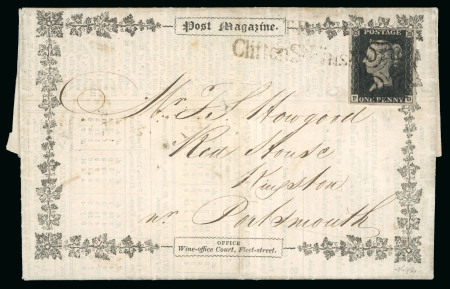 Post Magazine.
Clifton St
POSTAGE
ONE PENNY
Mr F. S. Howgord
Red House
Kingston
nr Portsmouth
OFFICE
Wine-office Court, Fleet-street.